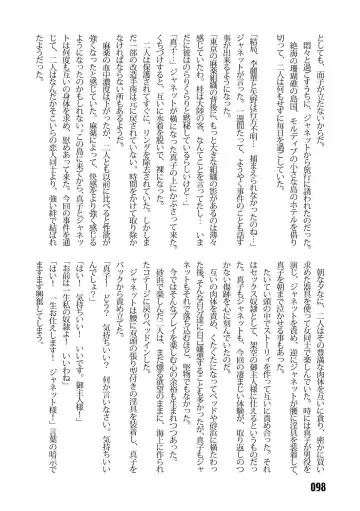 としても、面子が立たないからだ。
　悶々と過ごすうちに、ジャネットから旅行に誘われたのだった。
　絶海の珊瑚礁の島国、モルディブの小さな島のホテルを借り
切って、二人は何もせずに毎日を過ごしていた。
「結局、李麗華と矢崎は行方不明…　捕まえられなかったのね…」
　ジャネットが言った。一週間たって、ようやく事件のことも話す
事が出来るようになった。
「東京の麻薬組織の背後にも、もっと大きな組織の影があるのは薄々
感じていたわ。桂は大陸の客、なんてことを言ってたし…　いま
だに彼はのらりくらりと黙秘しているらしいけど…」
「真子…」ジャネットが横になった真子の上にかぶさって来て、
くちづけすると、互いに水着を脱いで、裸になった。
　二人は保護されてすぐに、リングを除去されていた。しかしま
だ一部の改造手術は元に戻されていない。時間をかけて取り除か
なければならない所もあるようだ。
　麻薬の血中濃度は下がったが、二人とも以前に比べると性欲が
強くなったと感じていた。麻薬によって、快感をより強く感じる
ようになったのかもしれない。この島に来てから真子とジャネッ
トは何度も互いの身体を求め、慰めあって来た。今回の事件を通
じて、二人はなんだかそこいらの恋人同士より、強い絆で結ばれ
たようだった。
　朝な夕なに、二人はその豊満な肉体を互いに貪り、密かに買い
求めた器具を使ってむさぼりあった。時には真子が男役を
演じてジャネットを責め、逆にジャネットが腰に淫具を装着して、
真子を朝まで泣かせる事もあった。
　たいてい頭の中でストーリーを作って互いに責め合った。それ
はセックス奴隷として、架空の御主人様に仕えるというものだっ
た。真子もジャネットも、今回の凄まじい体験が、取り返しのつ
かない傷跡を心に刻んでいたのだ。
　互いの肉体を責め、くたくたになってベッドや砂浜に横たわっ
た後、そんな自分達に自己嫌悪することも多かったが、真子もジャ
ネットもそれで落ち込むほど、堅物でもなかった。
　今ではそんなプレイを楽しむ心の余裕も生まれつつあった。
　砂浜で楽しんだ二人は、まだ燻る欲望のままに、海上に作られ
たコテージに戻りベッドインした。
　ジャネットは腰に双頭の張り型付きの淫具を装着し、真子を
バックから責め立てた。
「真子！　どう？　気持ちいい？　何か言いなさい。気持ちいい
んでしょう？」
「はい！　気持ちいい！　いいです。御主人様！」
「お前は一生私の奴隷よ！　いいわね」
「はい！　一生お仕えします！　ジャネット様！」言葉の暗示で
ますます興奮してしまう。
098